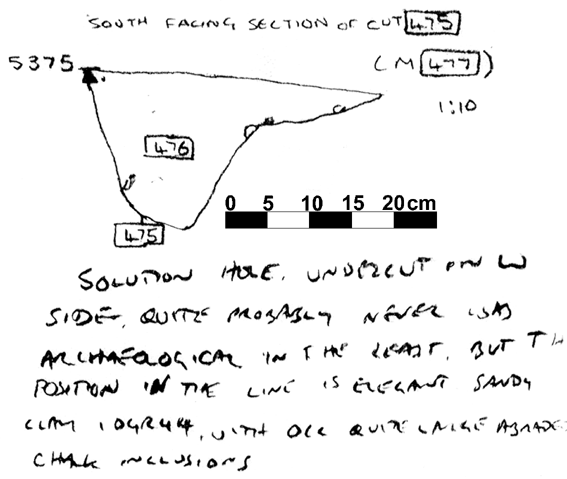 SOUTH FACING SECTION OF CUT 475
5375
(M 477)
1:10
476
0 5 10 15 20cm
475
SOLUTION HOLE, UNDERCUT ON W
SIDE, QUITE PROBABLY NEVER WAS
ARCHAEOLOGICAL IN THE LEAST, BUT TH
POSITION IN THE LINE IS ELEGANT SANDY
CLAY 10YR4/4, WITH OCC QUITE LARGE ABRADE
CHALK INCLUSIONS